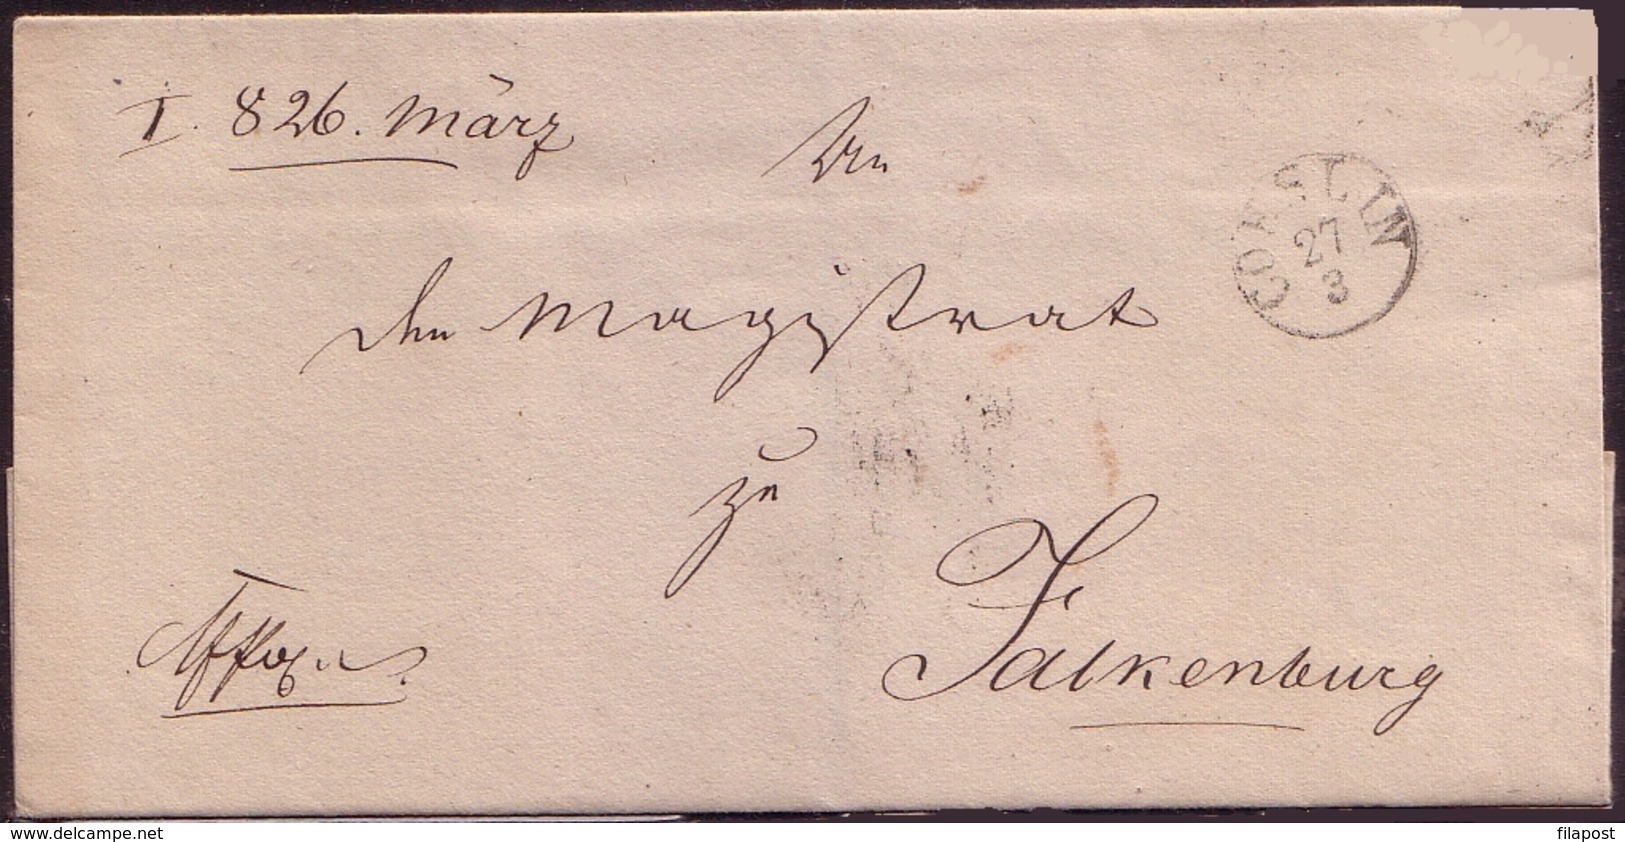 I. 826. März
An
COESLIN
27
3
den Magistrat
zu
Falkenburg
www.delcampe.net
filapost